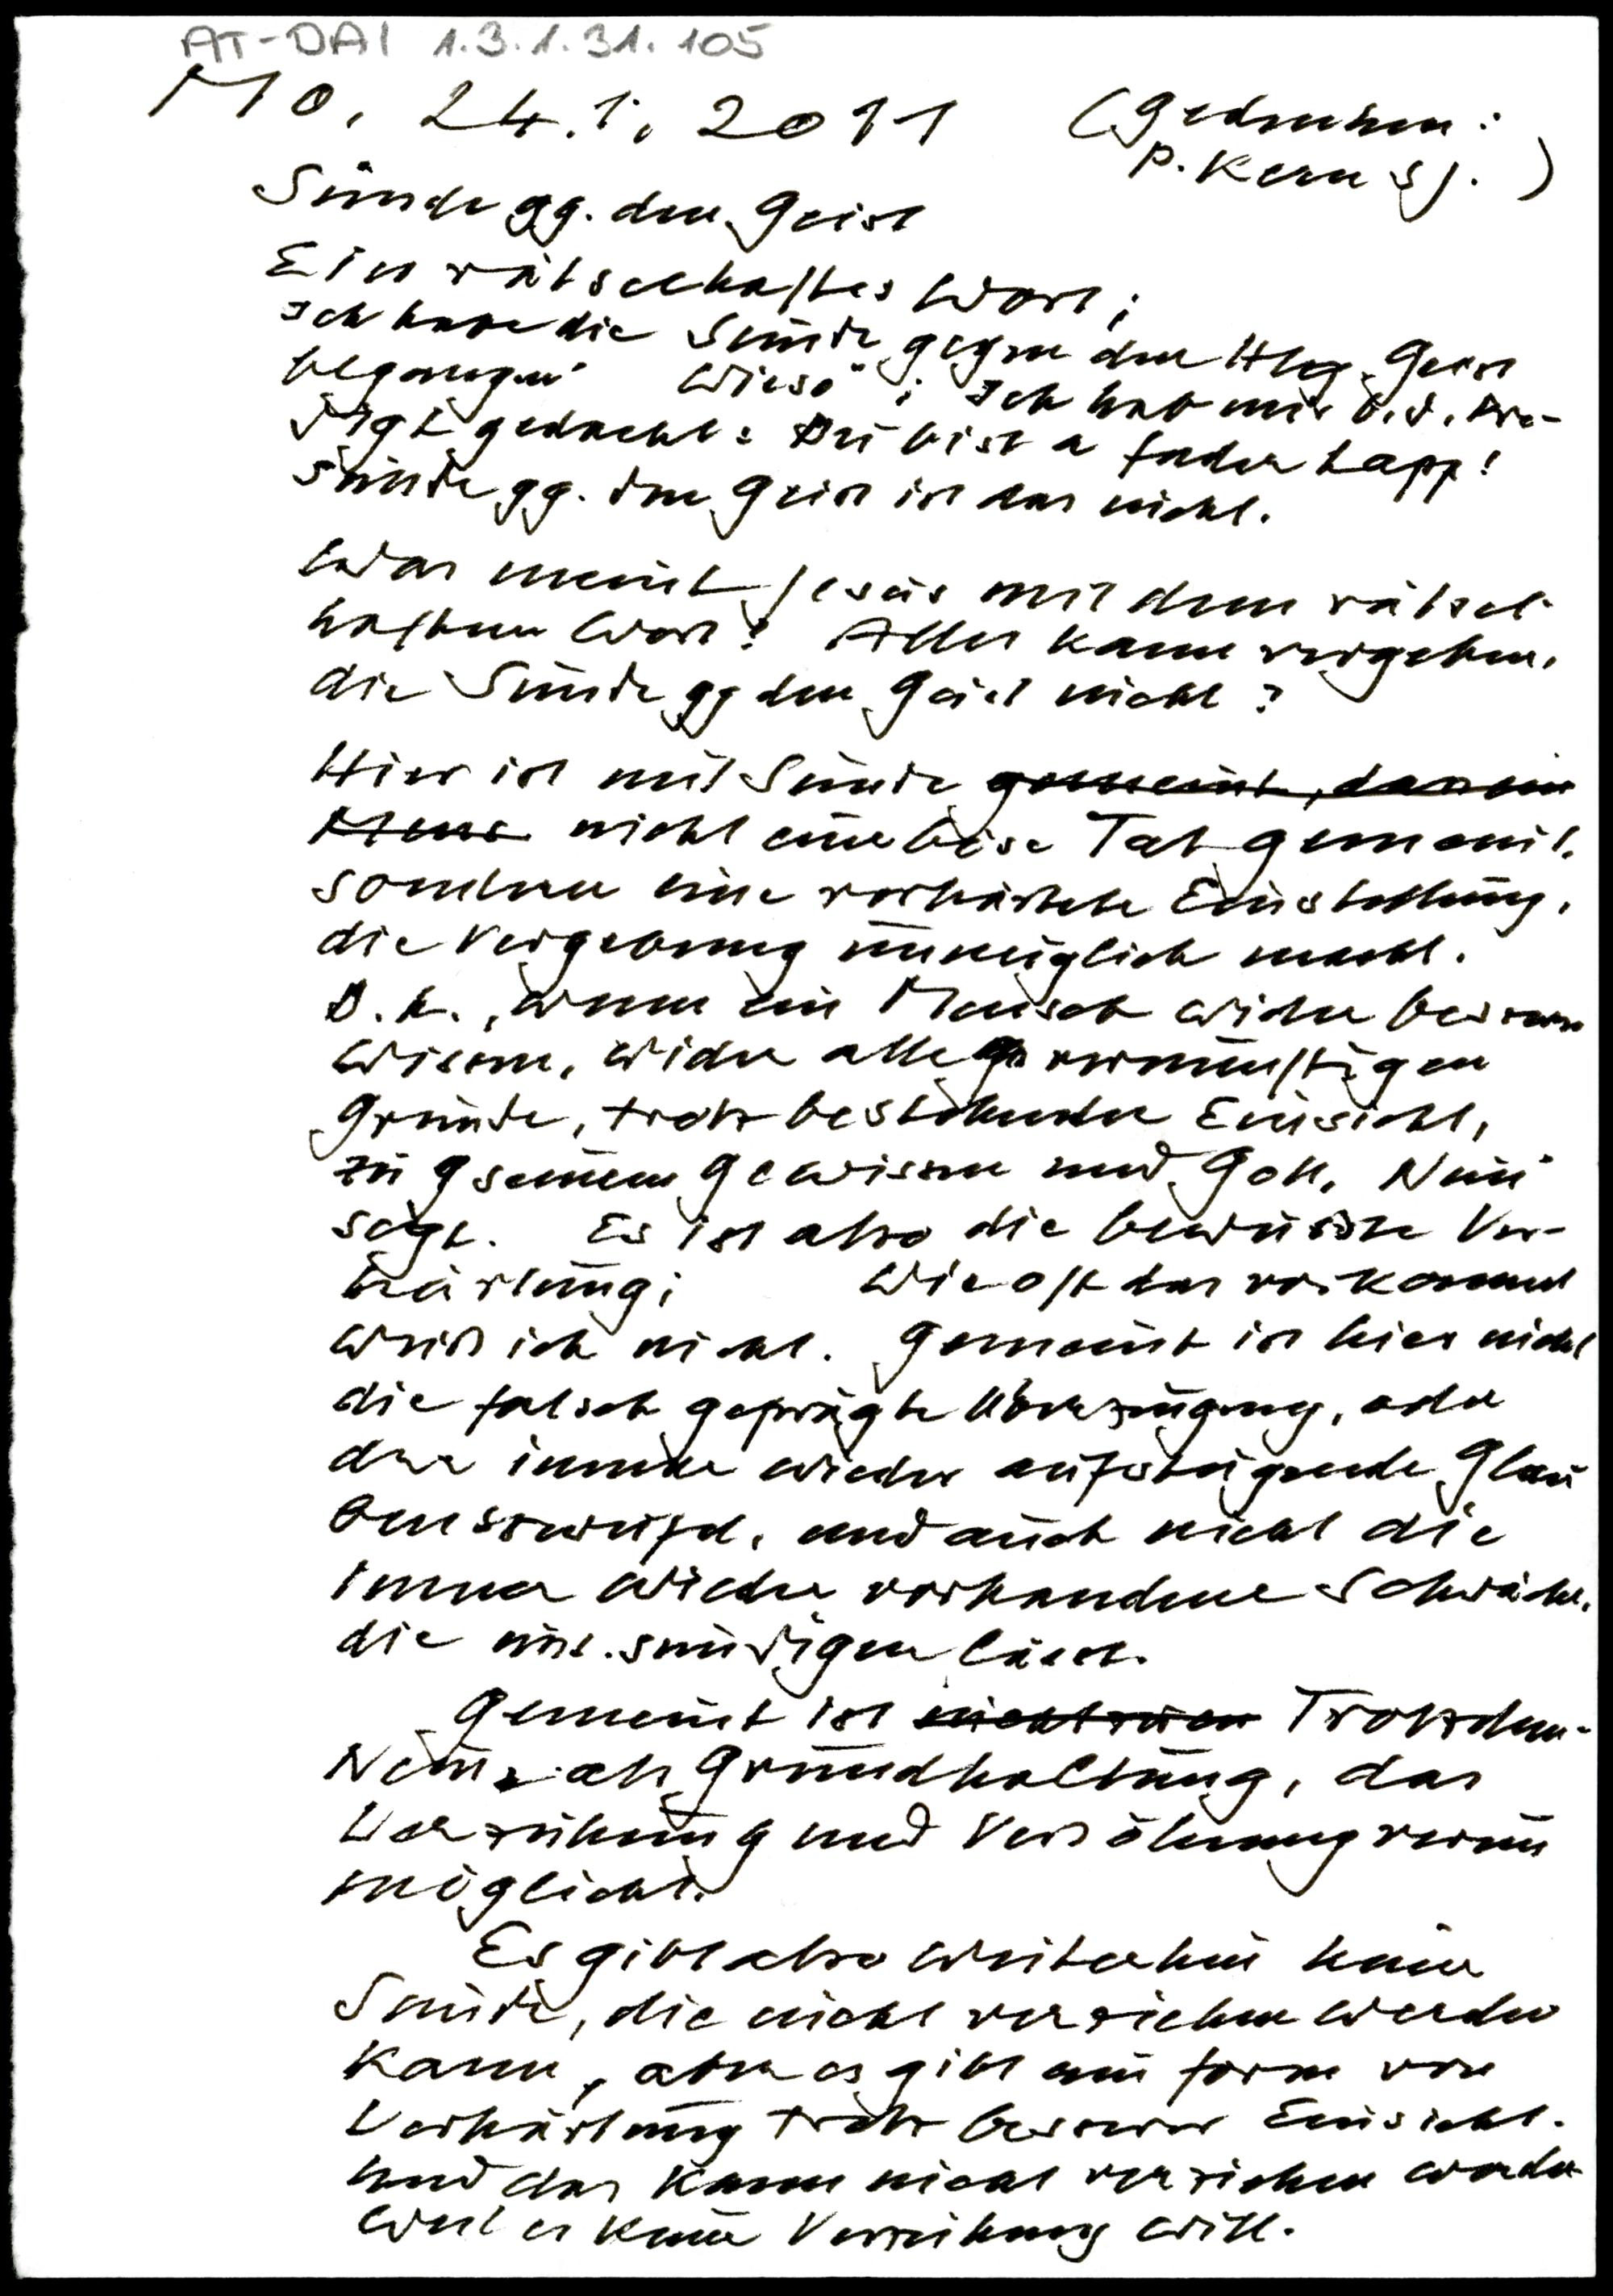 AT-DAI 1.3.1.31.105
Mo, 24.1, 2011 (Gedenken:
P. Kern SJ.)
Sünde gg. den Geist
Ein rätselhaftes Wort;
Ich habe die Sünde gegen den Hlg. Geist
begangen" Wieso"; Ich hab mir b.d. Pre-
digt gedacht: Du bist a fader Lapp!
Sünde gg. den Geist ist das nicht.
Was meint Jesus mit dem rätsel
haften Wort? Alles kann vergeben,
die Sünde gg den Geist nicht?
Hier ist mit Sünde gemeint, dass ein
Mens nicht eine böse Tat gemeint,
sondern eine verhärtete Einstellung,
die Vergebung unmöglich macht.
D.h., wenn ein Mensch wider besseren
Wissen, wider alle vernünftigen
Gründe, trotz bestehender Einsicht,
zu seinem Gewissen und Gott, Nein
sagt. Es ist also die bewusste Ver-
härtung; Wie oft das vorkommt
weiß ich nicht. Gemeint ist hier nicht
die falsch geprägte Überzeugung, oder
der immer wieder aufsteigende Glau
benszweifel, und auch nicht die
immer wieder vorhandene Schwäche,
die uns sündigen lässt.
Gemeint ist Trotzdem-
Nein als Grundhaltung, das
Verzeihung und Versöhnung verun
möglicht.
Es gibt also weiterhin keine
Sünde, die nicht verziehen werden
kann, aber es gibt ein Form von
Verhärtung trotz besserer Einsicht.
Und das kann nicht verziehen werden
weil er keine Verzeihung will.